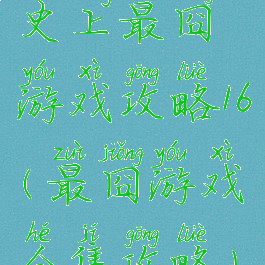 史上最囧
yóu xì gōng lüè
游戏攻略16
zuì jiǒng yóu xì
(最囧游戏
hé jí gōng lüè
合集攻略)